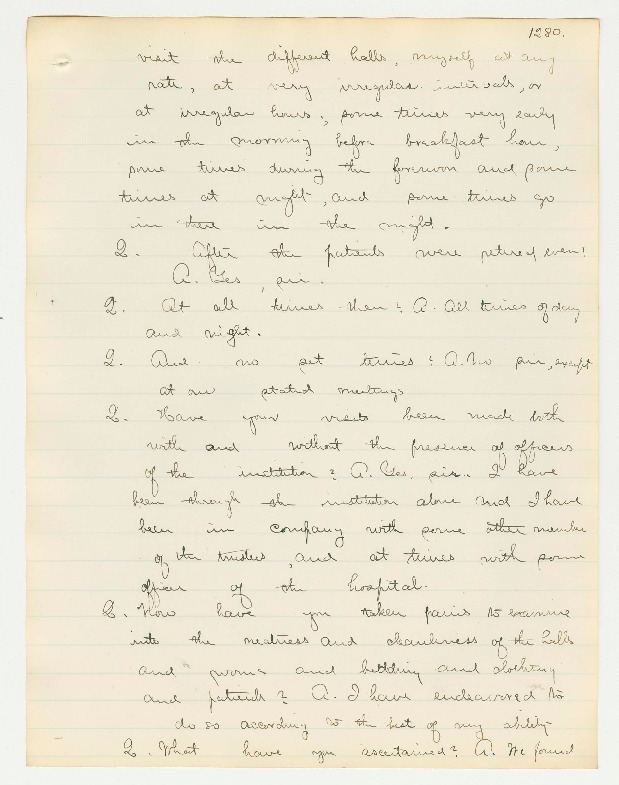 1280.
visit the different halls, myself at any
rate, at very irregular intervals, or
at irregular hours; some times very early
in the morning before breakfast hour,
some times during the forenoon and some
times at night, and some times go
in there in the night.
Q. After the patients were retired even?
A. Yes, sir.
Q. At all times then? A. All times of day
and night.
Q. And no set times? A. No sir, except
at our stated meetings
Q. Have your visits been made both
with and without the presence of officers
of the institution? A. Yes, sir. I have
been through the institution alone and I have
been in company with some other member
of the trustees, and at times with some
officer of the hospital.
Q. Now have you taken pains to examine
into the neatness and cleanliness of the halls
and rooms and bedding and clothing
and patients? A. I have endeavored to
do so according to the best of my ability
Q. What have you ascertained? A. We found